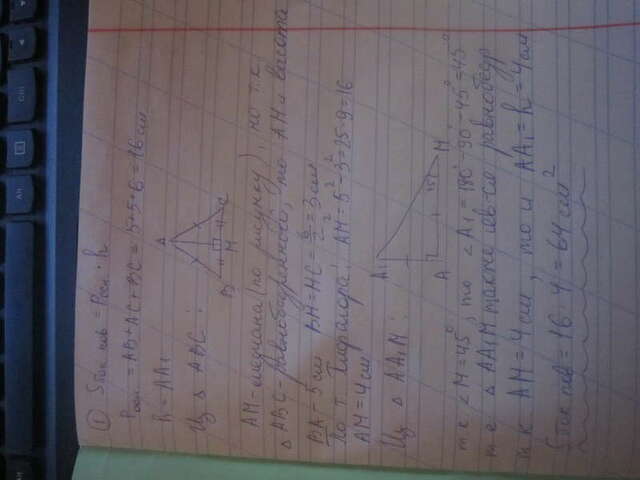 ① Sбок пов = Pосн · h
Pосн = AB + AC + BC = 5+5+6 = 16 см
h = AA₁
Из △ ABC :
A
B M C
AM - медиана (по рисунку), но т.к
△ ABC - равнобедренной, то AM и высота
BA = 5 см BM = MC = 6/2 = 3 см
По т. Пифагора: AM² = 5² - 3² = 25 - 9 = 16
AM = 4 см
Из △ AA₁M :
A₁
A 45° M
т к ∠M = 45°, то ∠A₁ = 180° - 90° - 45° = 45°
т е △ AA₁M также явл-ся равнобедр
т к AM = 4 см, то и AA₁ = h = 4 см
Sбок пов = 16 · 4 = 64 см²